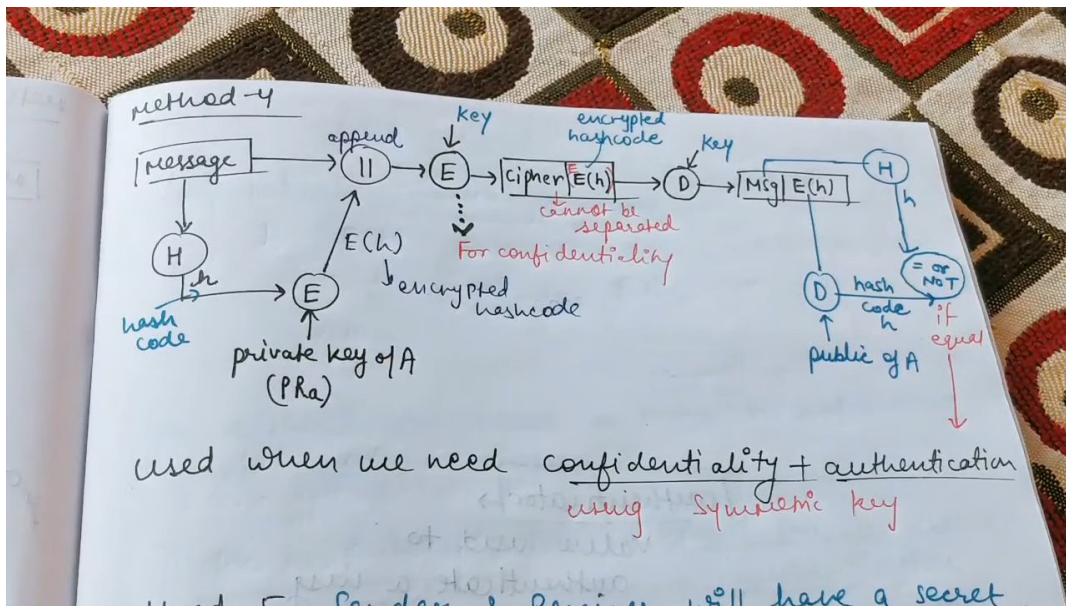 Method-4
Message
append
||
Key
E
cipher E E(h)
encrypted
hashcode
cannot be
separated
Key
D
Msg E(h)
H
h
= or
NOT
H
h
hash
code
E
E(h)
encrypted
hashcode
For confidentiality
private key of A
(PRa)
D
hash
code
h
public of A
if
equal
used when we need confidentiality + authentication
using symmetric key
will have a secret